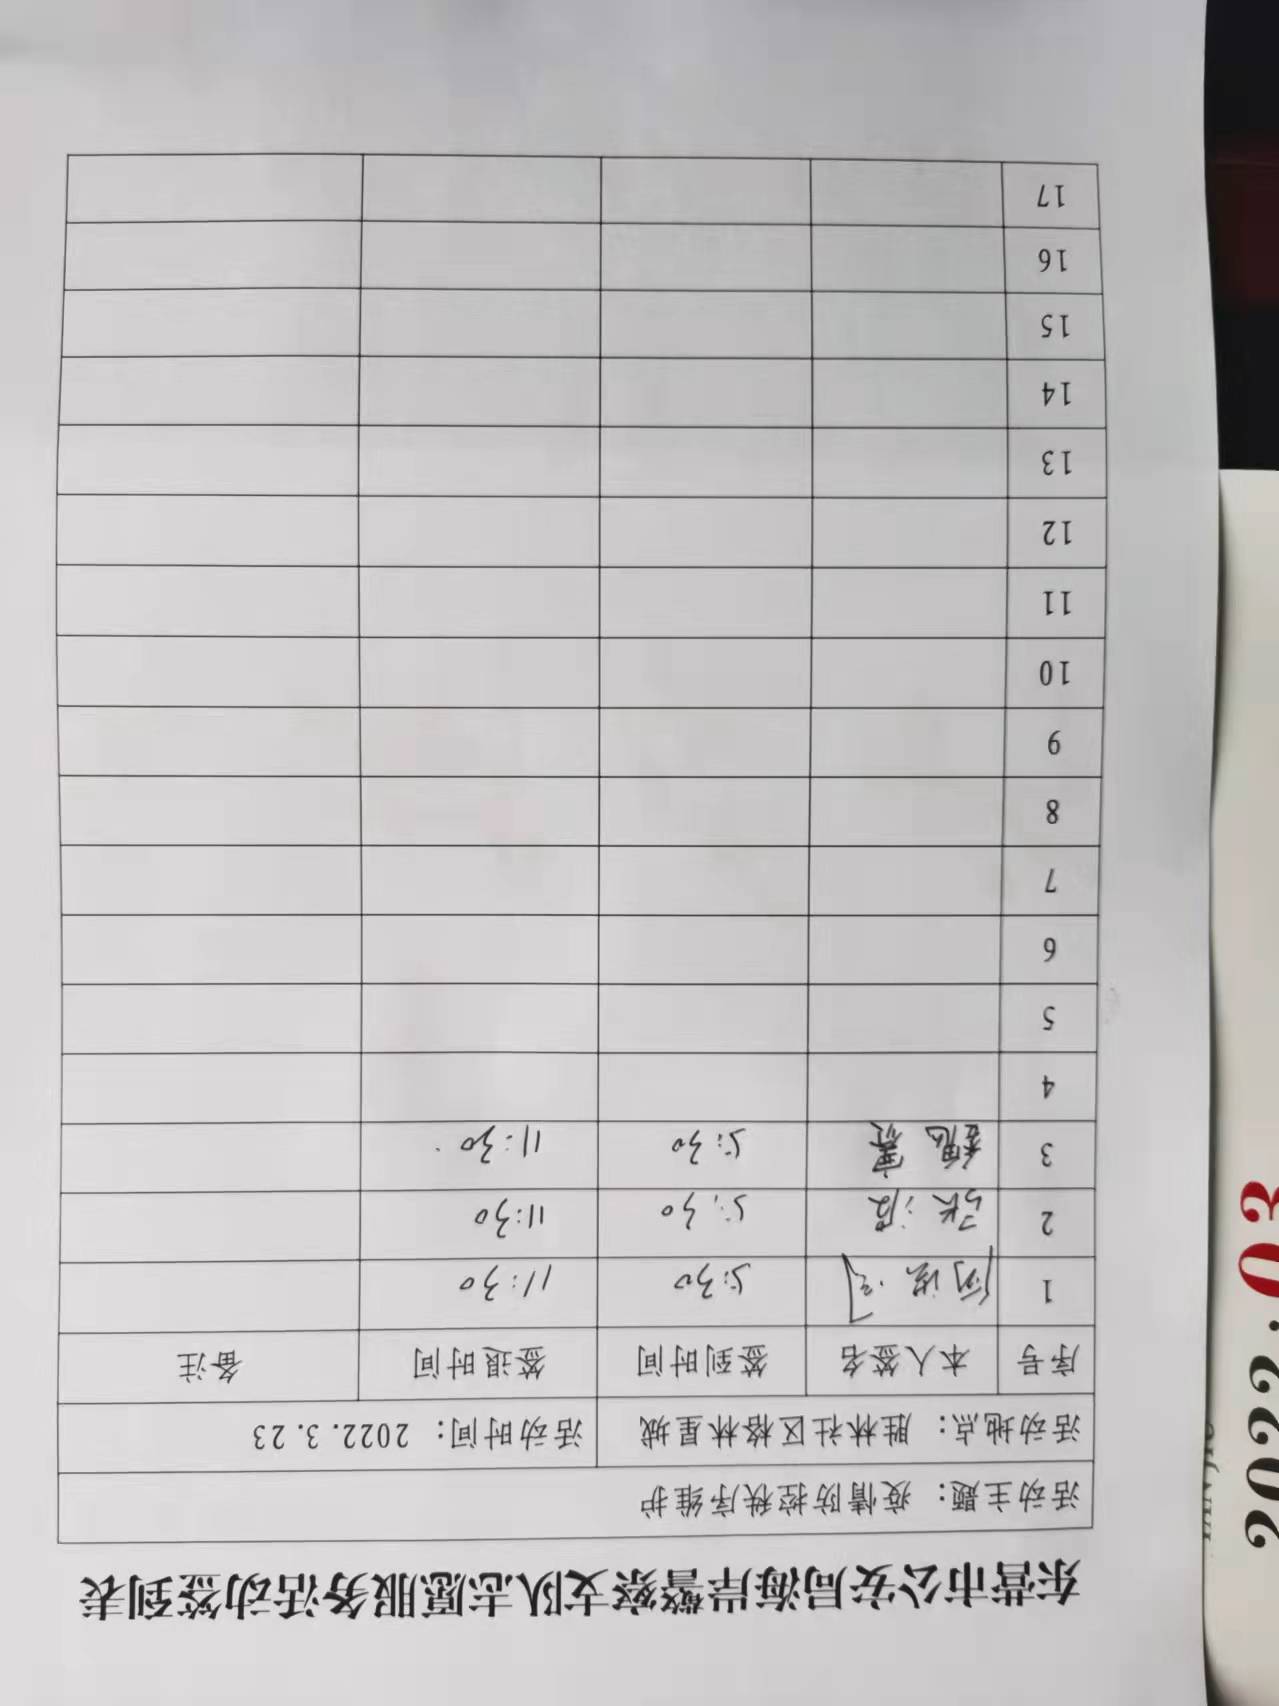 东营市公安局海岸警察支队志愿服务活动签到表
活动主题：疫情防控秩序维护
活动地点：胜林社区格林星城 活动时间：2022.3.23
序号 本人签名 签到时间 签退时间 备注
1 5:30 11:30
2 张波 5:30 11:30
3 5:30 11:30
4
5
6
7
8
9
10
11
12
13
14
15
16
17
2022.03